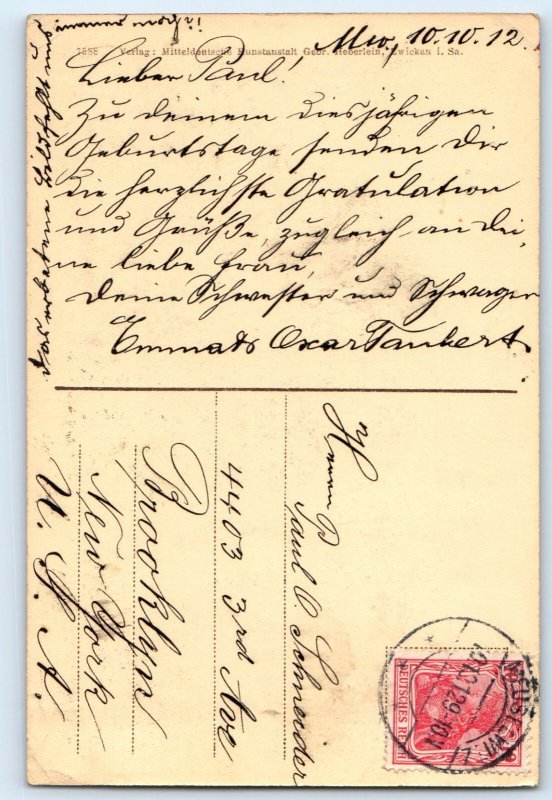 Mw, 10.10.12.
7588 Verlag: Mitteldeutsche Kunstanstalt Gebr. Heberlein, Zwickau i. Sa.
Lieber Paul!
Zu deinem diesjährigen
Geburtstage senden Dir
die herzlichste Gratulation
und Grüße, zugleich an dei,
ne liebe Frau,
Deine Schwester und Schwager
Emma & Oscar Taubert.
das erbetene Bild fehlt uns
immer noch!!
Herrn P
Paul O Schneider
4403 3rd Ave
Brooklyn
New York
U. S. A.
DEUTSCHES REICH